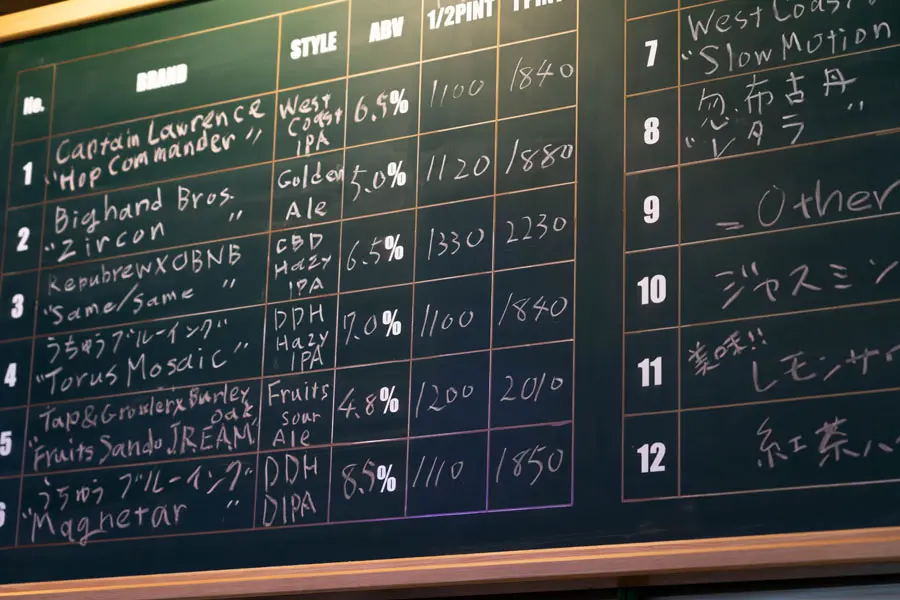 No. BRAND STYLE ABV 1/2PINT 1PINT
1 Captain Lawrence "Hop Commander" West Coast IPA 6.5% 1100 1840
2 Bighand Bros. "Zircon" Golden Ale 5.0% 1120 1880
3 RepubrewXOBNB "Same/Same" CBD Hazy IPA 6.5% 1330 2230
4 うちゅうブルーイング "Torus Mosaic" DDH Hazy IPA 7.0% 1100 1840
5 Tap&GrowlerxBurley oak "Fruits Sando J.R.E.A.M." Fruits sour Ale 4.8% 1200 2010
6 うちゅうブルーイング "Magnetar" DDH DIPA 8.5% 1110 1850
7 West Coast "Slow Motion
8 忽布古丹 "レタラ"
9 = Other
10 ジャスミン
11 美味!! レモンサ
12 紅茶ハ